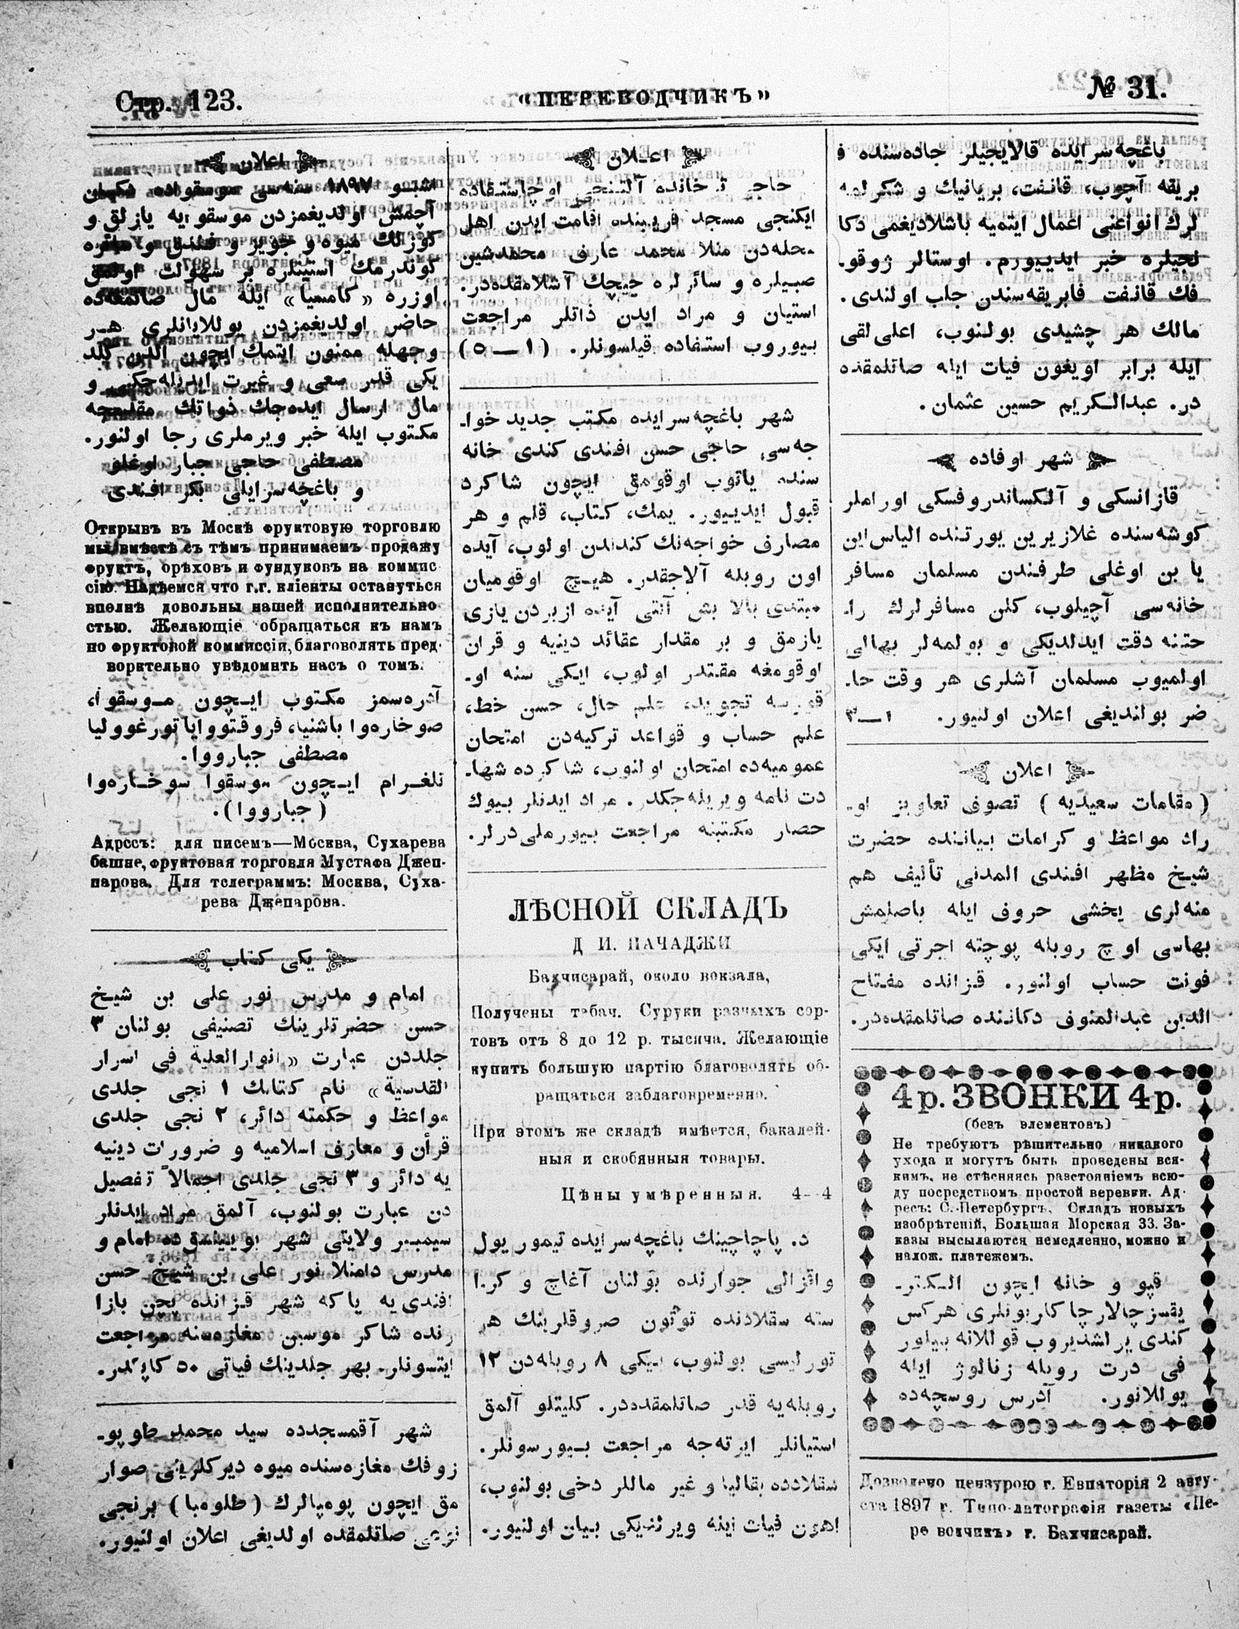 Стр. 123.
«ПЕРЕВОДЧИКЪ»
№ 31.
باغچه‌سرایده قالایجیلر جاده‌سنده ف
بریقه آچوب، قانفت، بریانیك و شکرلمه
لرك انواعنی اعمال ایتمیه باشلادیغمی دکا
نجیلره خبر ایدییورم. اوستالر ژوقو.
فك قانفت فابریقه‌سندن جلب اولندی.
مالك هر چشیدی بولنوب، اعلی‌لقی
ایله برابر اویغون فیات ایله صاتلمقده
در. عبدالکریم حسین عثمان.
شهر اوفاده
قازانسکی و آلکساندروفسکی اوراملر
کوشه‌سنده غلازیرین یورتنده الیاس این
یا بن اوغلی طرفندن مسلمان مسافر
خانه‌سی آچیلوب، کلن مسافرلرك را.
حتنه دقت ایدلدیکی و بولمه‌لر بهالی
اولمیوب مسلمان آشلری هر وقت حا.
ضر بولندیغی اعلان اولنیور. ۱—۳
اعلان
(مقامات سعیدیه) تصوفی تعاویز او.
راد مواعظ و کرامات بیاننده حضرت
شیخ مظهر افندی المدنی تألیف هم
منه‌لری یخشی حروف ایله باصلمش
بهاسی اوچ روبله پوچته اجرتی ایکی
فونت حساب اولنور. قزانده مفتاح
الدین عبدالمنوف دکاننده صاتلمقده‌در.
4 р. ЗВОНКИ 4 р.
(безъ элементовъ)
Не требуютъ рѣшительно никакого
ухода и могутъ быть проведены вся-
кимъ, не стѣсняясь разстояніемъ всю-
ду посредствомъ простой веревки. Ад-
ресъ: С.-Петербургъ. Складъ новыхъ
изобрѣтеній, Большая Морская 33. За-
казы высылаются немедленно, можно и
налож. платежемъ.
قپو و خانه ایچون الـکتر.
یقسز چالارچا کار بونلری هرکس
کندی یرلشدیروب قوللانه بیلور
فی درت روبله زنالوژ ایله
یوللانور. آدرس روسچه‌ده
Дозволено цензурою г. Евпаторія 2 авгу-
ста 1897 г. Типо-литографія газеты «Пе-
ре водчикъ» г. Бахчисарай.
اعلان
حاجی ترخانده آلتنجی اوچاستقاده
ایکنجی مسجد قربینده اقامت ایدن اهل
محله‌دن منلا محمد عارف محمدشین
صبیلره و سائرلره چیچك آشلامقده‌در.
استیان و مراد ایدن ذاتلر مراجعت
بیوروب استفاده قیلسونلر. (۱—۵)
شهر باغچه‌سرایده مکتب جدید خوا.
جه‌سی حاجی حسن افندی کندی خانه
سنده یاتوب اوقومق ایچون شاکرد
قبول ایدییور. یمك، کتاب، قلم و هر
مصارف خواجه‌نك کندندن اولوب، آیده
اون روبله آلاجقدر. هیچ اوقومیان
مبتدی بالا بش آلتی آیده ازبردن یازی
یازمق و بر مقدار عقائد دینیه و قران
اوقومغه مقتدر اولوب، ایکی سنه او.
تجوید، علم حال، حسن خط،
علم حساب و قواعد ترکیه‌دن امتحان
عمومیه‌ده امتحان اولنوب، شاکرده شها.
دت نامه ویریله‌جکدر. مراد ایدنلر بیوك
حصار مکتبنه مراجعت بیورملی‌درلر.
ЛѢСНОЙ СКЛАДЪ
Д И. ПАЧАДЖИ
Бахчисарай, около вокзала,
Получены табач. Суруки разныхъ сор-
товъ отъ 8 до 12 р. тысяча. Желающіе
купить большую партію благоволятъ об-
ращаться заблаговременно.
При этомъ же складѣ имѣется, бакалей-
ныя и скобянныя товары.
Цѣны умѣренныя. 4—4
د. پاچاجینك باغچه‌سرایده تیمور یول
واقزالی جوارنده بولنان آغاچ و کر.
سته سقلادنده توتون صروقلرینك هر
تورلیسی بولنوب، بیکی ۸ روبله‌دن ۱۲
روبله‌یه قدر صاتلمقده‌در. کلیتلو آلمق
استیانلر ایرته‌جه مراجعت بیورسونلر.
سقلادده بقالیا و غیر ماللر دخی بولنوب،
اهون فیات اینه ویرلدیکی بیان اولنیور.
اعلان
اشبو ۱۸۹۷ سنه‌سی موسقواده دکان
آچمش اولدیغمزدن موسقوایه یازلق و
کوزلك میوه و جویز و فندق و سائره
کوندرمك استینلره بر سهولت اولمق
اوزره «کامسیا» ایله مال صاتمغه‌ده
حاضر اولدیغمزدن یوللایانلری هـر
وجهله ممنون ایتمك ایچون الدن کلد
یکی قدر سعی و غیرت ایدیله‌جکنی و
مال ارسال ایده‌جك ذواتك مقدمجه
مکتوب ایله خبر ویرملری رجا اولنور.
مصطفی حاجی جبار اوغلو
و باغچه‌سرایلی بکر افندی
Открывъ въ Москвѣ фруктовую торговлю
мы вмѣстѣ съ тѣмъ принимаемъ продажу
фруктъ, орѣховъ и фундуковъ на коммис-
сію. Надѣемся что г.г. кліенты останутся
вполнѣ довольны нашей исполнительно-
стью. Желающіе обращаться къ намъ
по фруктовой коммиссіи, благоволятъ пред-
ворительно увѣдомить насъ о томъ.
آدره‌سمز مکتوب ایچون مـوسقوا،
صوخاره‌وا باشنیا، فروقتووایا تورغوولیا
مصطفی جبارووا.
تلغـرام ایـچون موسقوا سوخـاره‌وا
(جبارووا).
Адресъ: для писемъ—Москва, Сухарева
башне, фруктовая торговля Мустафа Джеп-
парова. Для телеграммъ: Москва, Суха-
рева Джепарова.
یکی کتاب
امام و مدرس نور علی بن شیخ
حسن حضرتلرینك تصنیفی بولنان ۳
جلددن عبارت «انوارالعلیة فی اسرار
القدسیة» نام کتابك ۱ نجی جلدی
مواعظ و حکمته دائر، ۲ نجی جلدی
قرأن و معارف اسلامیه و ضرورات دینیه
یه دائر و ۳ نجی جلدی اجمالاً تفصیل
دن عبارت بولنوب، آلمق مراد ایدنلر
سیمبیر ولایتی شهر بویینسق‌ده امام و
مدرس داملا نور علی بن شیخ حسن
افندی‌یه یاکه شهر قزانده پچن بازا
رنده شاکر موسین مغازه‌سنه مراجعت
ایتسونلر. بهر جلدینك فیاتی ۵۰ کاپکدر.
شهر آقمسجدده سید محمد طوپو.
زوفك مغازه‌سنده میوه دیرکلرینی صوار
مق ایچون پومپالرك (طلومبا) برنجی
نوعی صاتلمقده اولدیغی اعلان اولنیور.